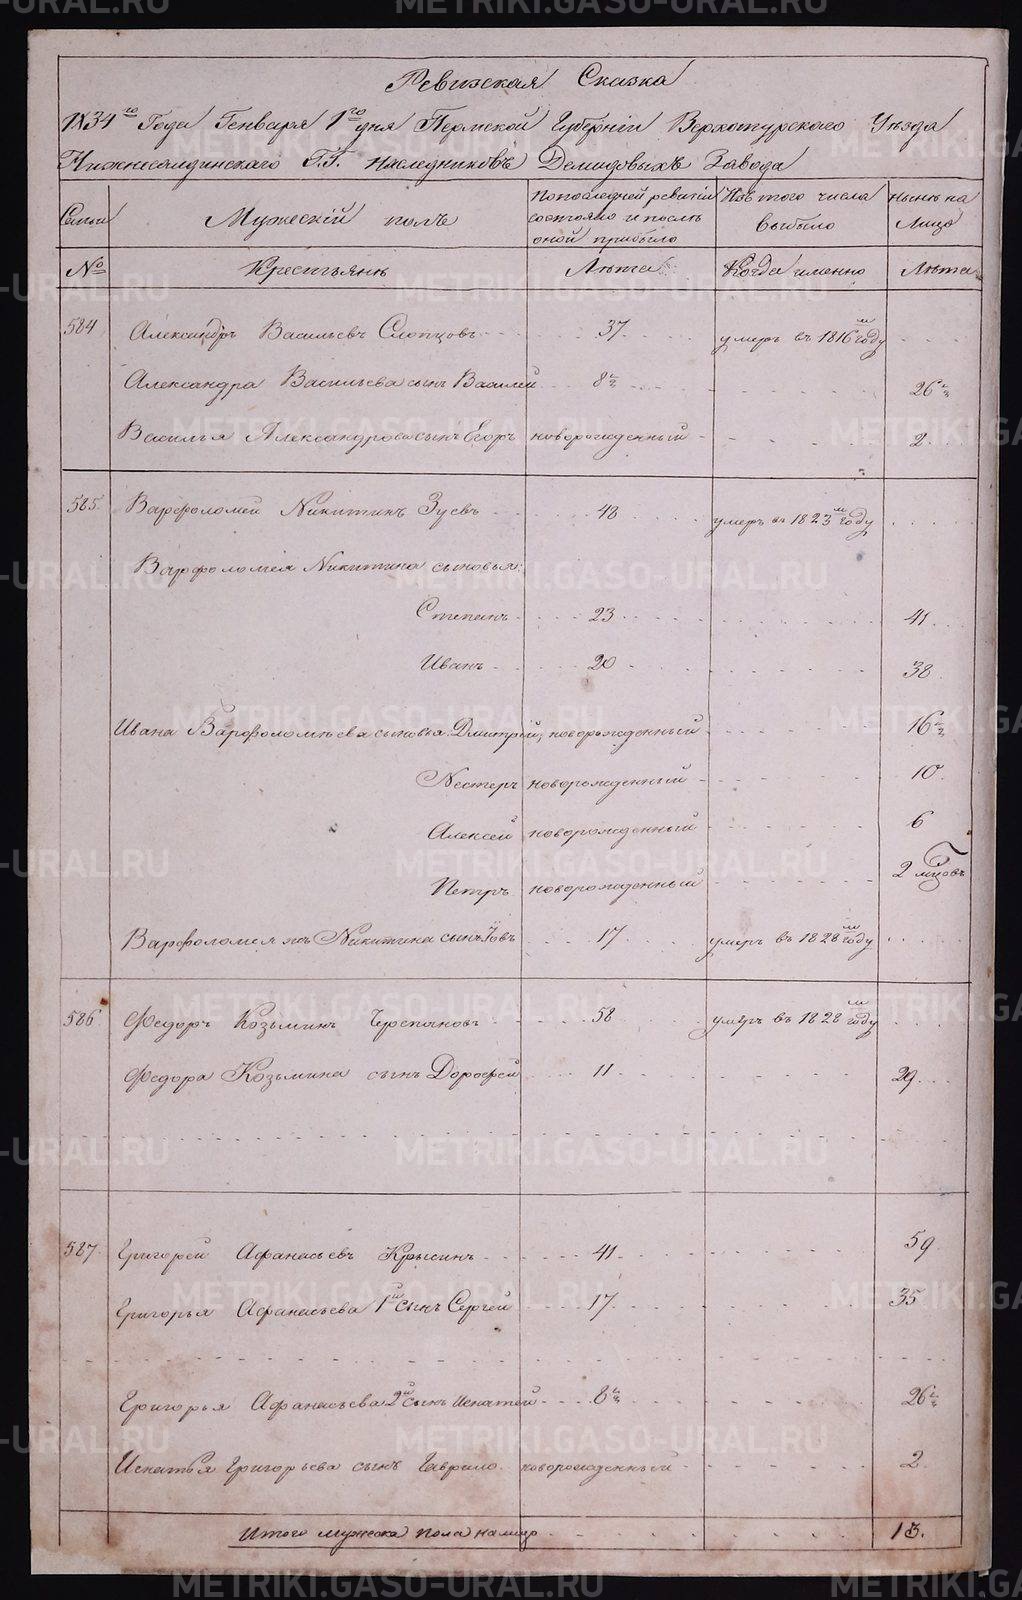 Ревизская Сказка
1834го Года Генваря 1го дня Пермской Губерніи Верхотурскаго Уѣзда
Нижнесалдинскаго Г.Г. Наслѣдниковъ Демидовыхъ Завода
Семьи
Мужескій полъ
По последней ревизіи состояло и послѣ оной прибыло
Изъ того числа выбыло
Нынѣ на Лицо
№
Крестьянъ
Лѣта
Когда именно
Лѣта
584 Александръ Васильевъ Слопцовъ 37 умеръ въ 1816м году
Александра Васильева сынъ Василей 8½ 26½
Василья Александрова сынъ Егоръ новорожденный 2
585 Варфоломей Никитинъ Зуевъ 48 умеръ въ 1823м году
Варфоломея Никитина сыновья:
Степанъ 23 41
Иванъ 20 38
Ивана Варфоломѣева сыновья: Дмитрей, новорожденный 16½
Нестеръ новорожденный 10
Алексей новорожденный 6
Петръ новорожденный 2 мцовъ
Варфоломея жъ Никитина сынъ Іовъ 17 умеръ въ 1828м году
586 Федоръ Козьминъ Черепановъ 58 умеръ въ 1828м году
Федора Козьмина сынъ Дорофей 11 29
587 Григорей Афанасьевъ Крысинъ 41 59
Григорья Афанасьева 1й сынъ Сергей 17 35
Григорья Афанасьева 2й сынъ Игнатей 8½ 26½
Игнатья Григорьева сынъ Гаврило новорожденный 2
Итого мужеска пола налицо 13.